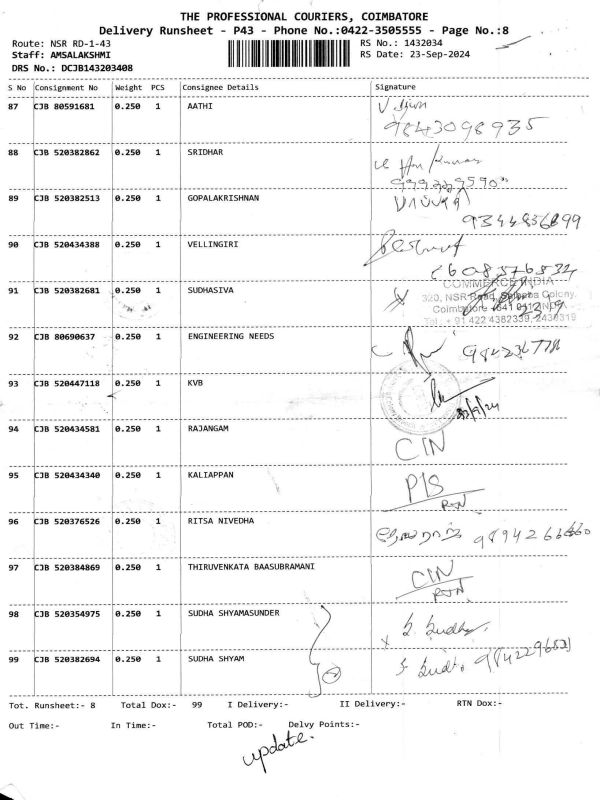 THE PROFESSIONAL COURIERS, COIMBATORE
Delivery Runsheet - P43 - Phone No.:0422-3505555 - Page No.:8
Route: NSR RD-1-43
RS No.: 1432034
Staff: AMSALAKSHMI
RS Date: 23-Sep-2024
DRS No.: DCJB143203408
S No Consignment No Weight PCS Consignee Details Signature
87 CJB 80591681 0.250 1 AATHI
9843098935
88 CJB 520382862 0.250 1 SRIDHAR
89 CJB 520382513 0.250 1 GOPALAKRISHNAN
90 CJB 520434388 0.250 1 VELLINGIRI
COMMERCE INDIA
91 CJB 520382681 0.250 1 SUDHASIVA
320, NSR Road, Saibaba Colony,
92 CJB 80690637 0.250 1 ENGINEERING NEEDS
93 CJB 520447118 0.250 1 KVB
23/9/24
94 CJB 520434581 0.250 1 RAJANGAM
CIN
95 CJB 520434340 0.250 1 KALIAPPAN
P/S
RTN
96 CJB 520376526 0.250 1 RITSA NIVEDHA
97 CJB 520384869 0.250 1 THIRUVENKATA BAASUBRAMANI
CIN
RTN
98 CJB 520354975 0.250 1 SUDHA SHYAMASUNDER
99 CJB 520382694 0.250 1 SUDHA SHYAM
Tot. Runsheet:- 8 Total Dox:- 99 I Delivery:- II Delivery:- RTN Dox:-
Out Time:- In Time:- Total POD:- Delvy Points:-
update.